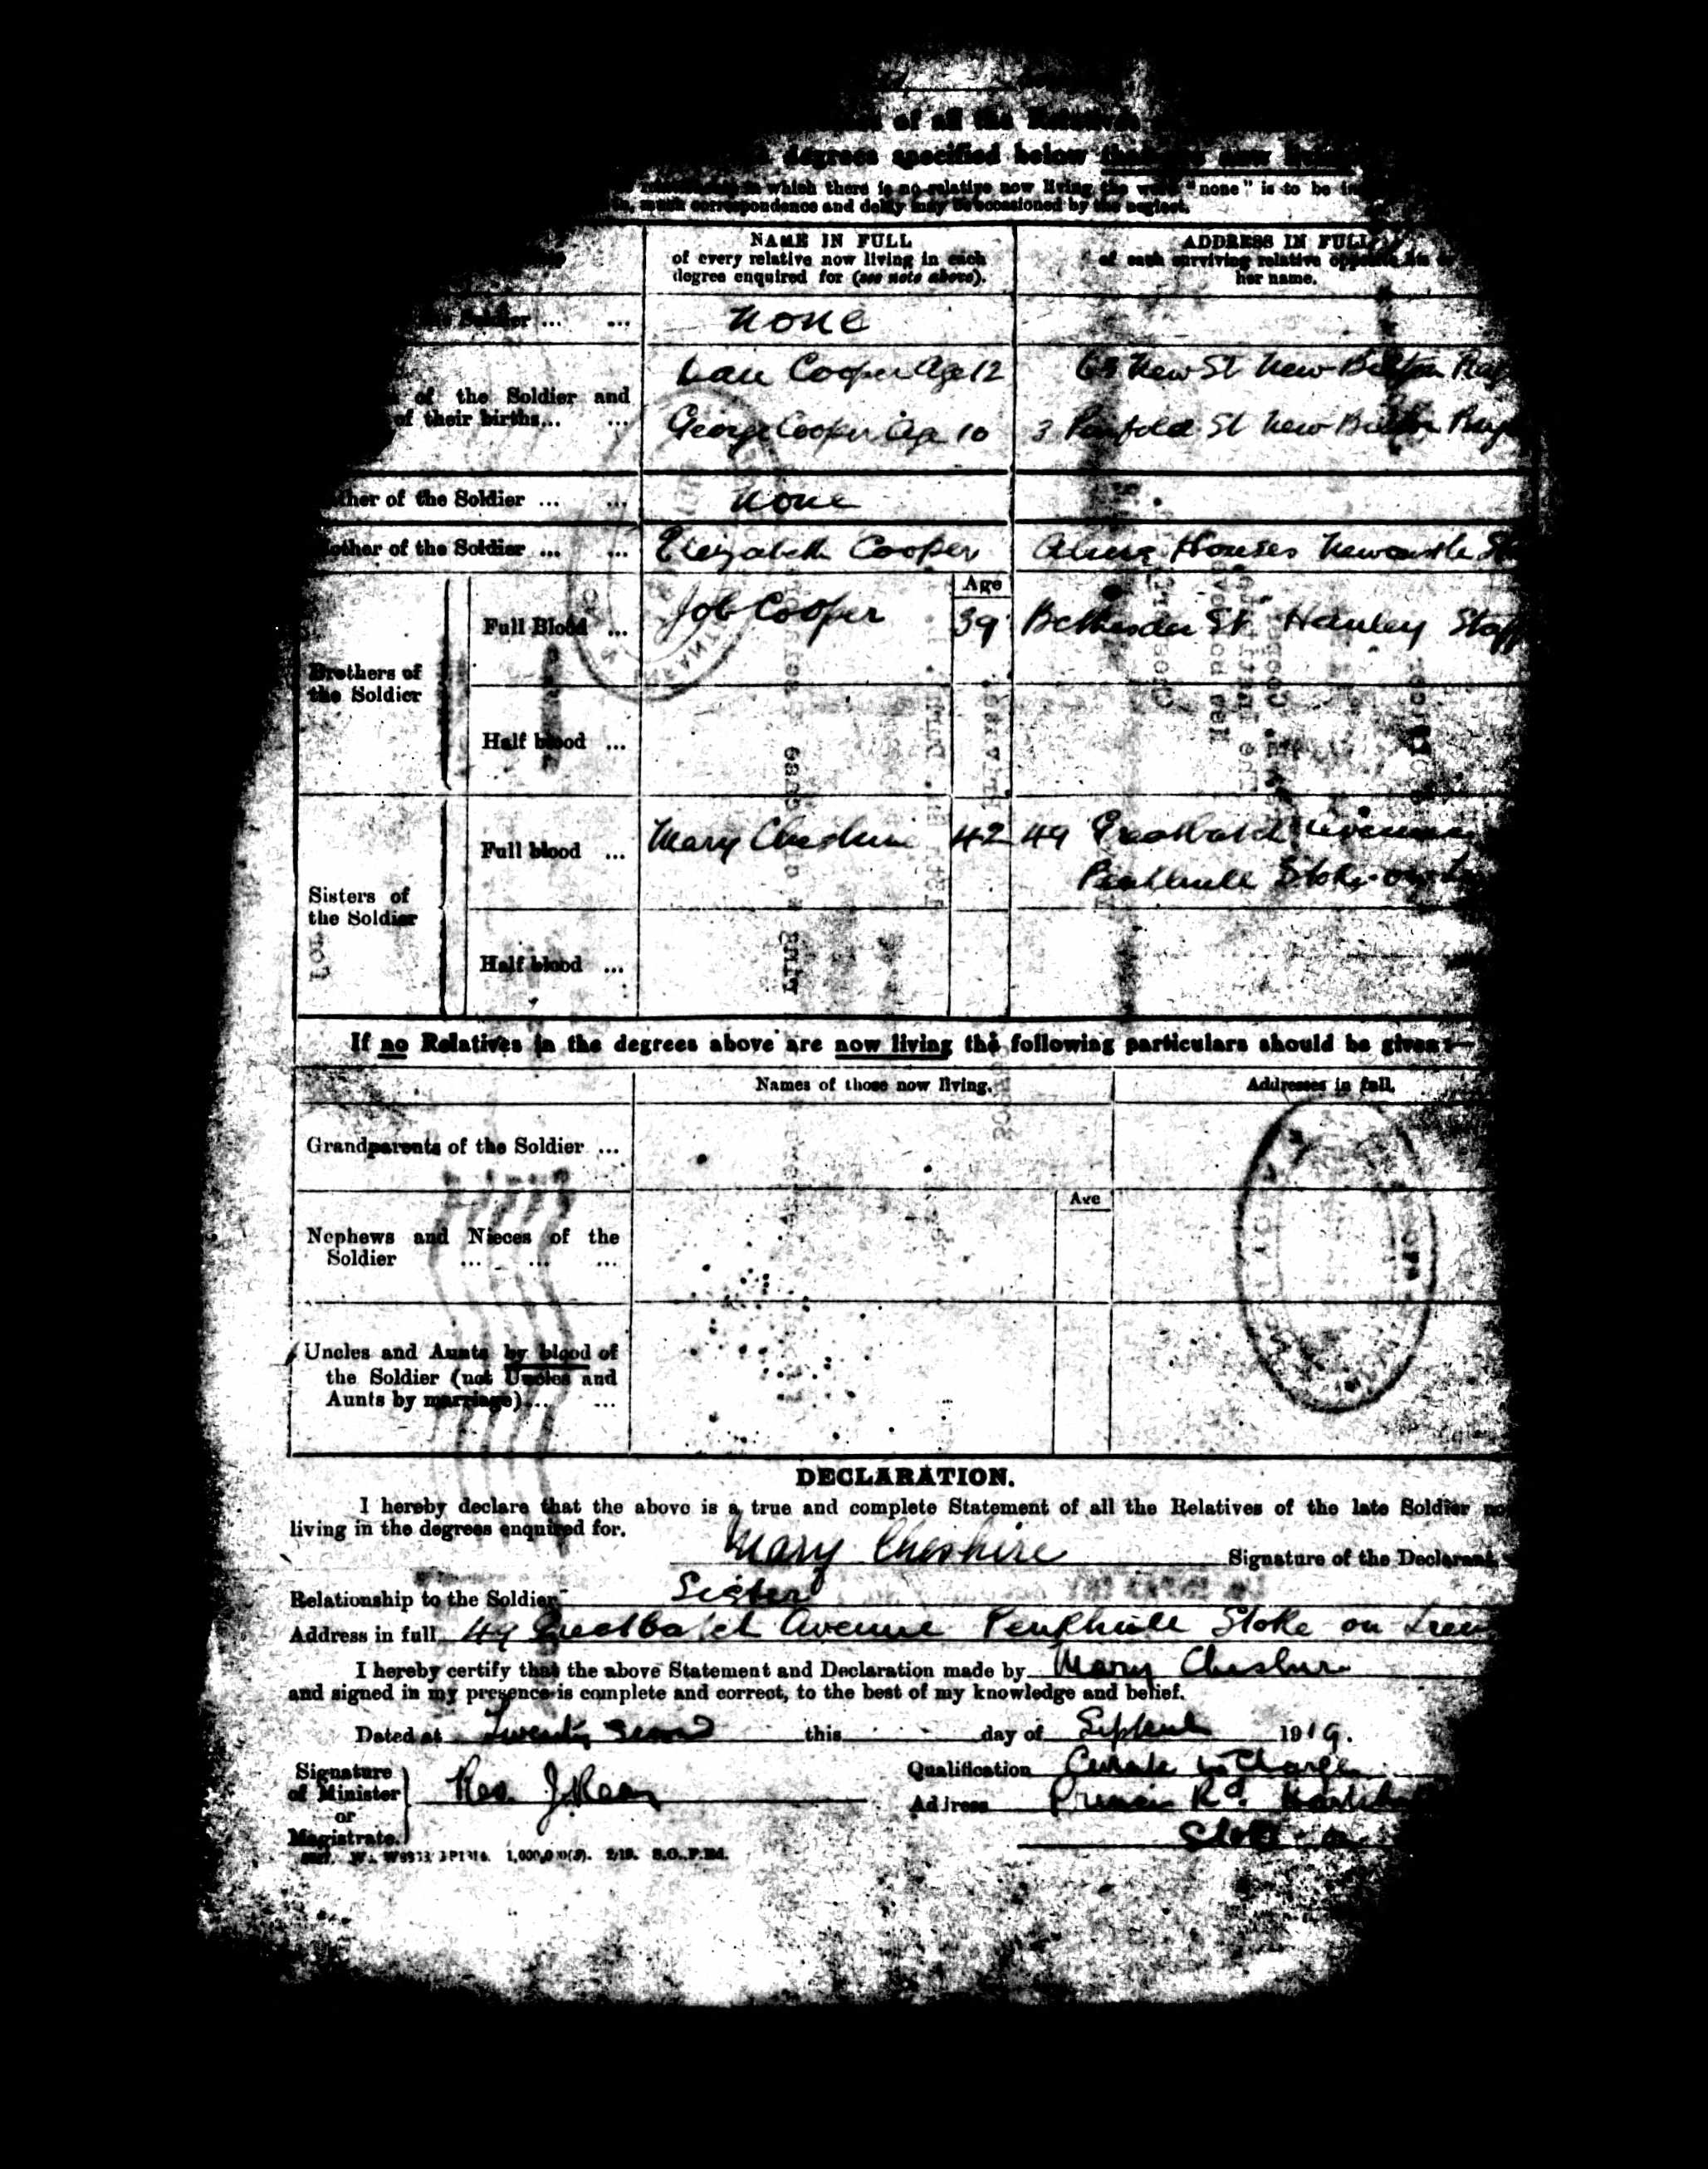 of all the Relatives
degrees specified below
in which there is no relative now living the word "none" is to be
much correspondence and delay may be occasioned by the neglect.
NAME IN FULL
of every relative now living in each
degree enquired for (see note above).
ADDRESS IN FULL
of each surviving relative opposite his or
her name.
Soldier ... ...
None
of the Soldier and
of their births... ...
Cooper Age 12
63 New St New Bilton
George Cooper Age 10
3 Penfold St New Bilton
ther of the Soldier ... ...
None
other of the Soldier ... ...
Elizabeth Cooper
Alms Houses Newcastle
Brothers of
the Soldier
Full Blood ...
Job Cooper
Age
39
Bethesda St Hanley Staff
Half blood ...
Sisters of
the Soldier
Full blood ...
Mary Cheshire
42
49 Greatbatch Avenue
Penkhull Stoke-on-
Half blood ...
If no Relatives in the degrees above are now living the following particulars should be given:—
Names of those now living.
Addresses in full.
Grandparents of the Soldier ...
Nephews and Nieces of the
Soldier ... ... ...
Age
Uncles and Aunts by blood of
the Soldier (not Uncles and
Aunts by marriage)... ...
DECLARATION.
I hereby declare that the above is a true and complete Statement of all the Relatives of the late Soldier no
living in the degrees enquired for.
Mary Cheshire
Signature of the Declarant.
Relationship to the Soldier Sister
Address in full 49 Greatbatch Avenue Penkhull Stoke on Tren
I hereby certify that the above Statement and Declaration made by Mary Cheshire
and signed in my presence is complete and correct, to the best of my knowledge and belief.
Dated at Twenty second this day of Septemb 1919.
Signature
of Minister
or
Magistrate.
Rev. J.
Qualification Curate in Charge
Address Princes Rd. Hartshill
Stoke on